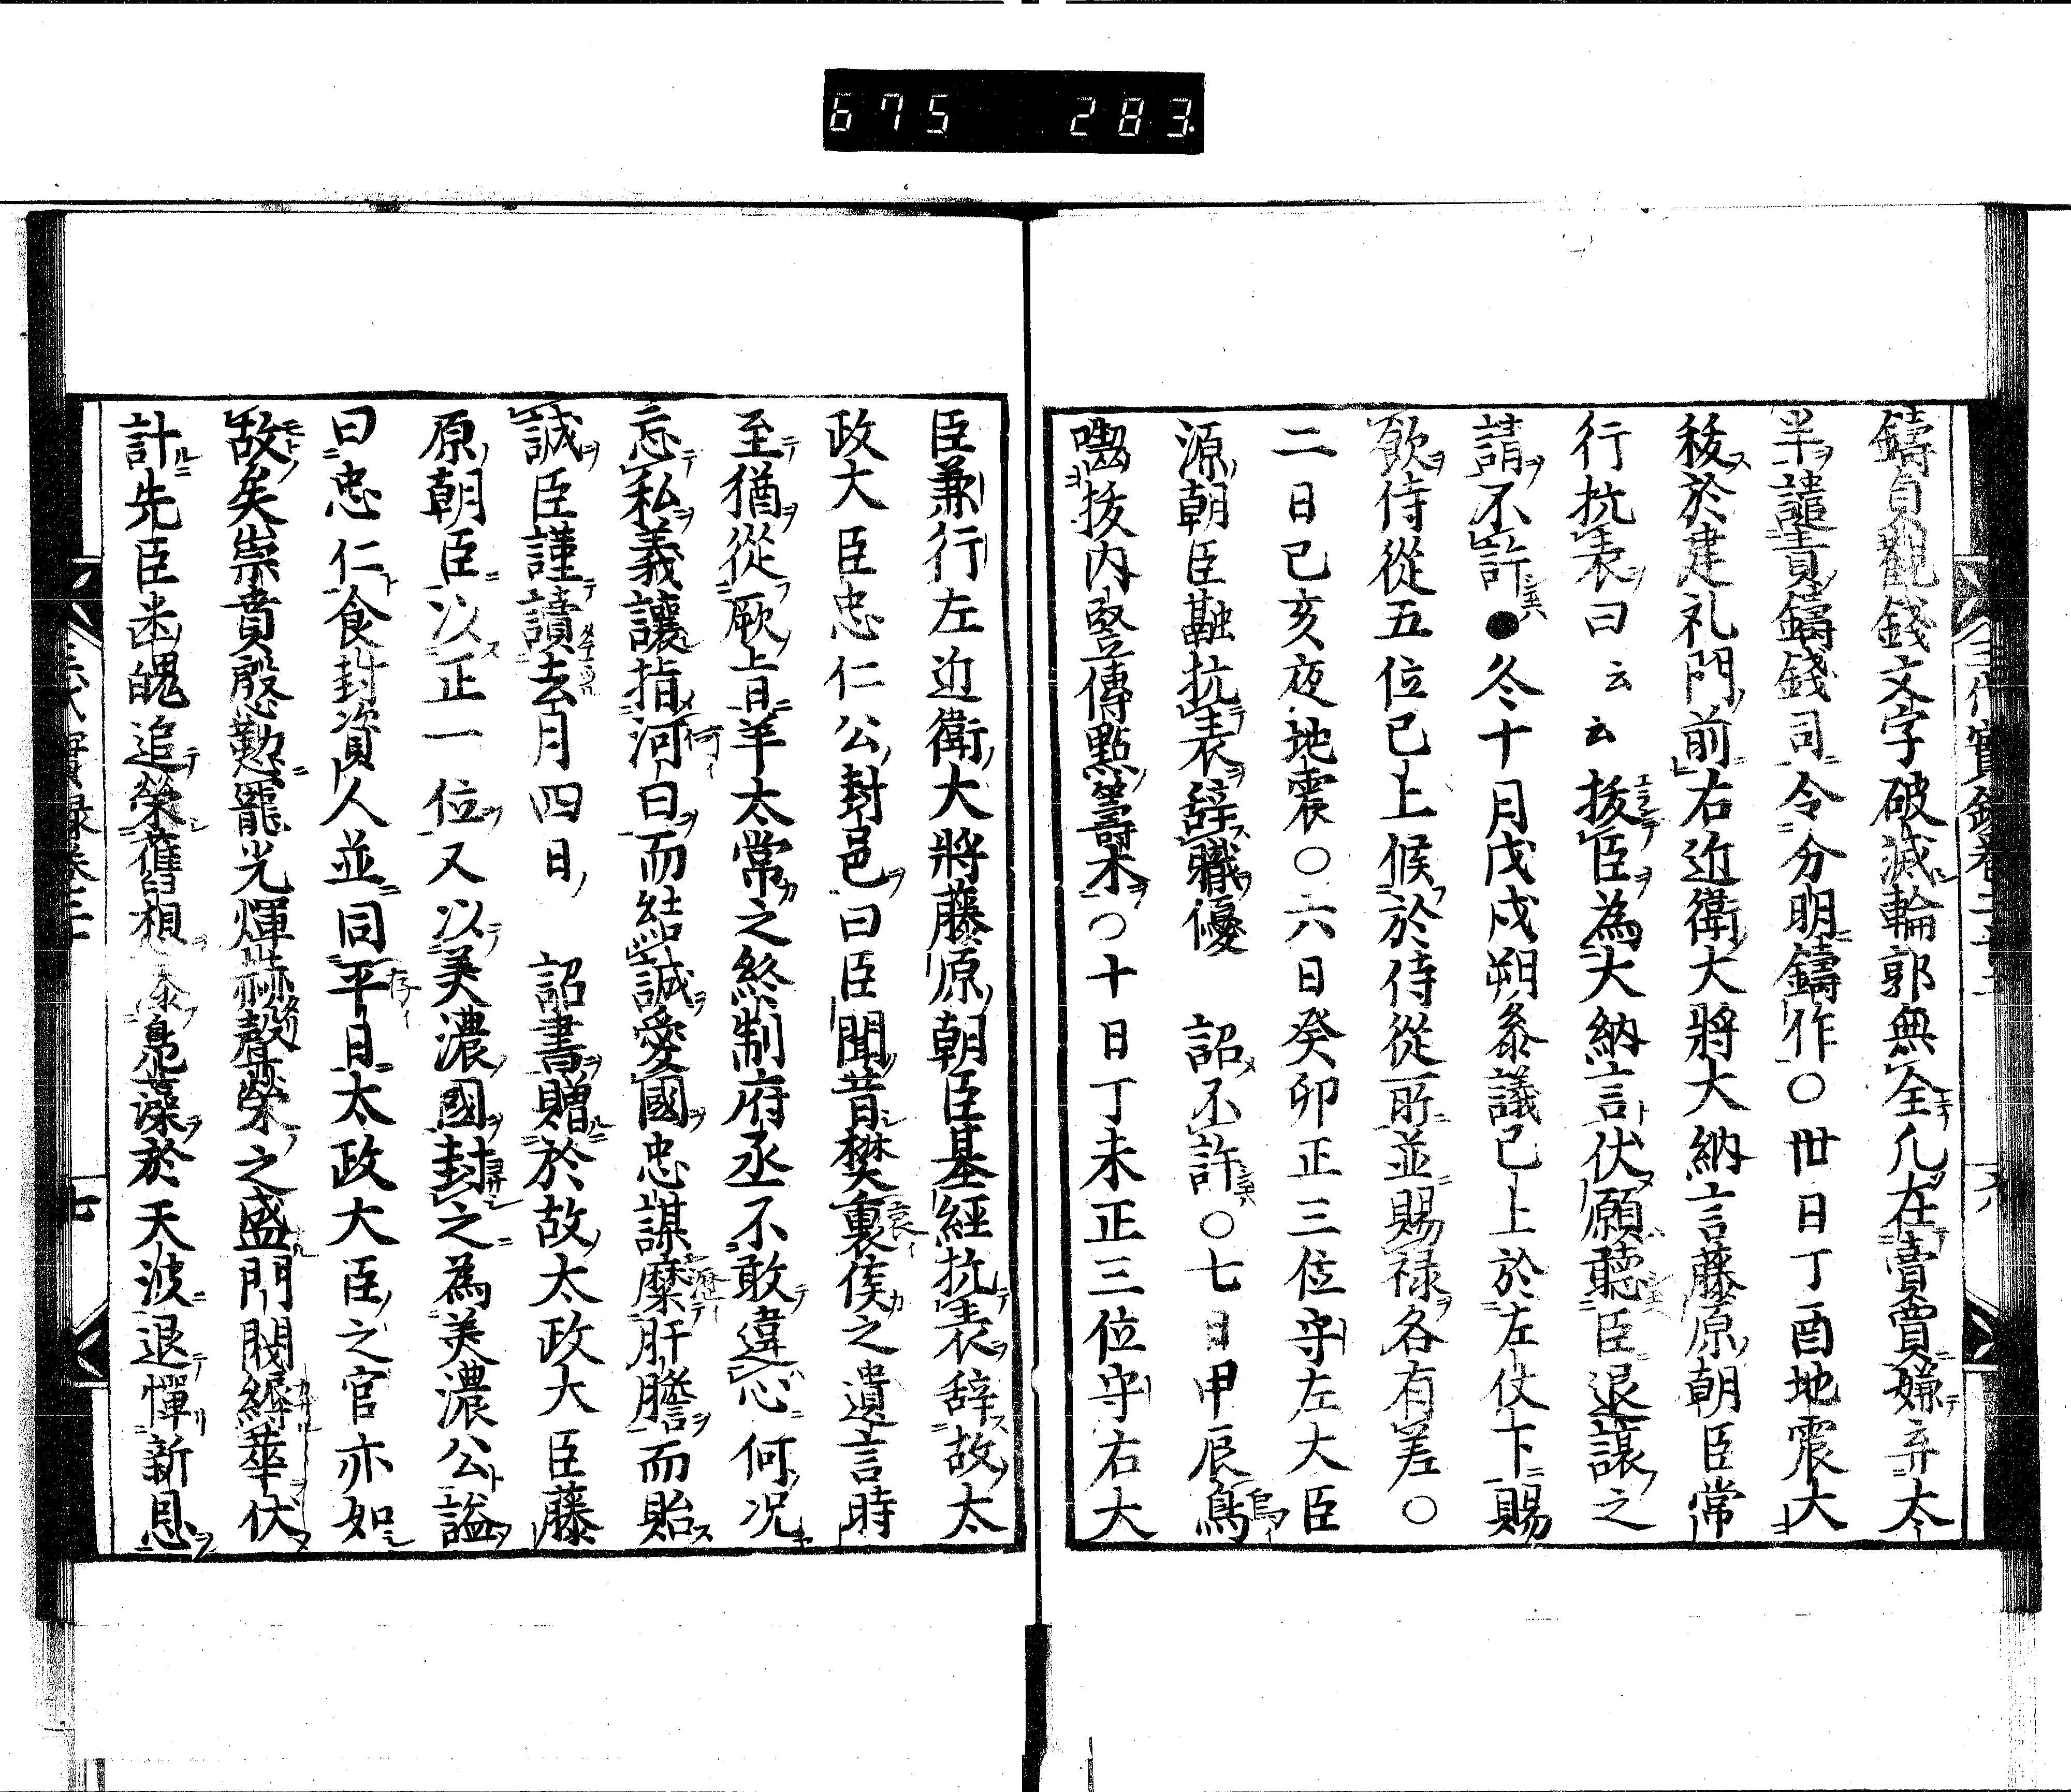 675 283
鑄貞觀錢文字破滅輪郭無全凢在賣買嫌弃太
半譴責鑄錢司令分明鑄作〇丗日丁酉地震大
秡於建礼門前右近衛大將大納言藤原朝臣常
行抗表曰云云拔臣為大納言伏願聽臣退讓之
請不許●冬十月戊戌朔叅議已上於左仗下賜
飲侍從五位已上候於侍從所並賜禄各有差〇
二日已亥夜地震〇六日癸卯正三位守左大臣
源朝臣融抗表辞職優 詔不許〇七日甲辰鳥
嚙拔内竪傳點籌木〇十日丁未正三位守右大
臣兼行左近衛大將藤原朝臣基經抗表辞故太
政大臣忠仁公封邑曰臣聞昔樊裏侯之遺言時
至猶從厥上日羊太常之終制府丞不敢違心何况
忘私義讓指河曰而結誠愛國忠謀糜肝膽而貽
誠臣謹讀去月四日 詔書贈於故太政大臣藤
原朝臣以正一位又以美濃國封之為美濃公謚
曰忠仁食封資人並同平日太政大臣之官亦如
故矣崇賁慇懃寵光煇赫聲榮之盛門閥縟華伏
計先臣幽魄追榮舊相鳧藻於天波退憚新恩